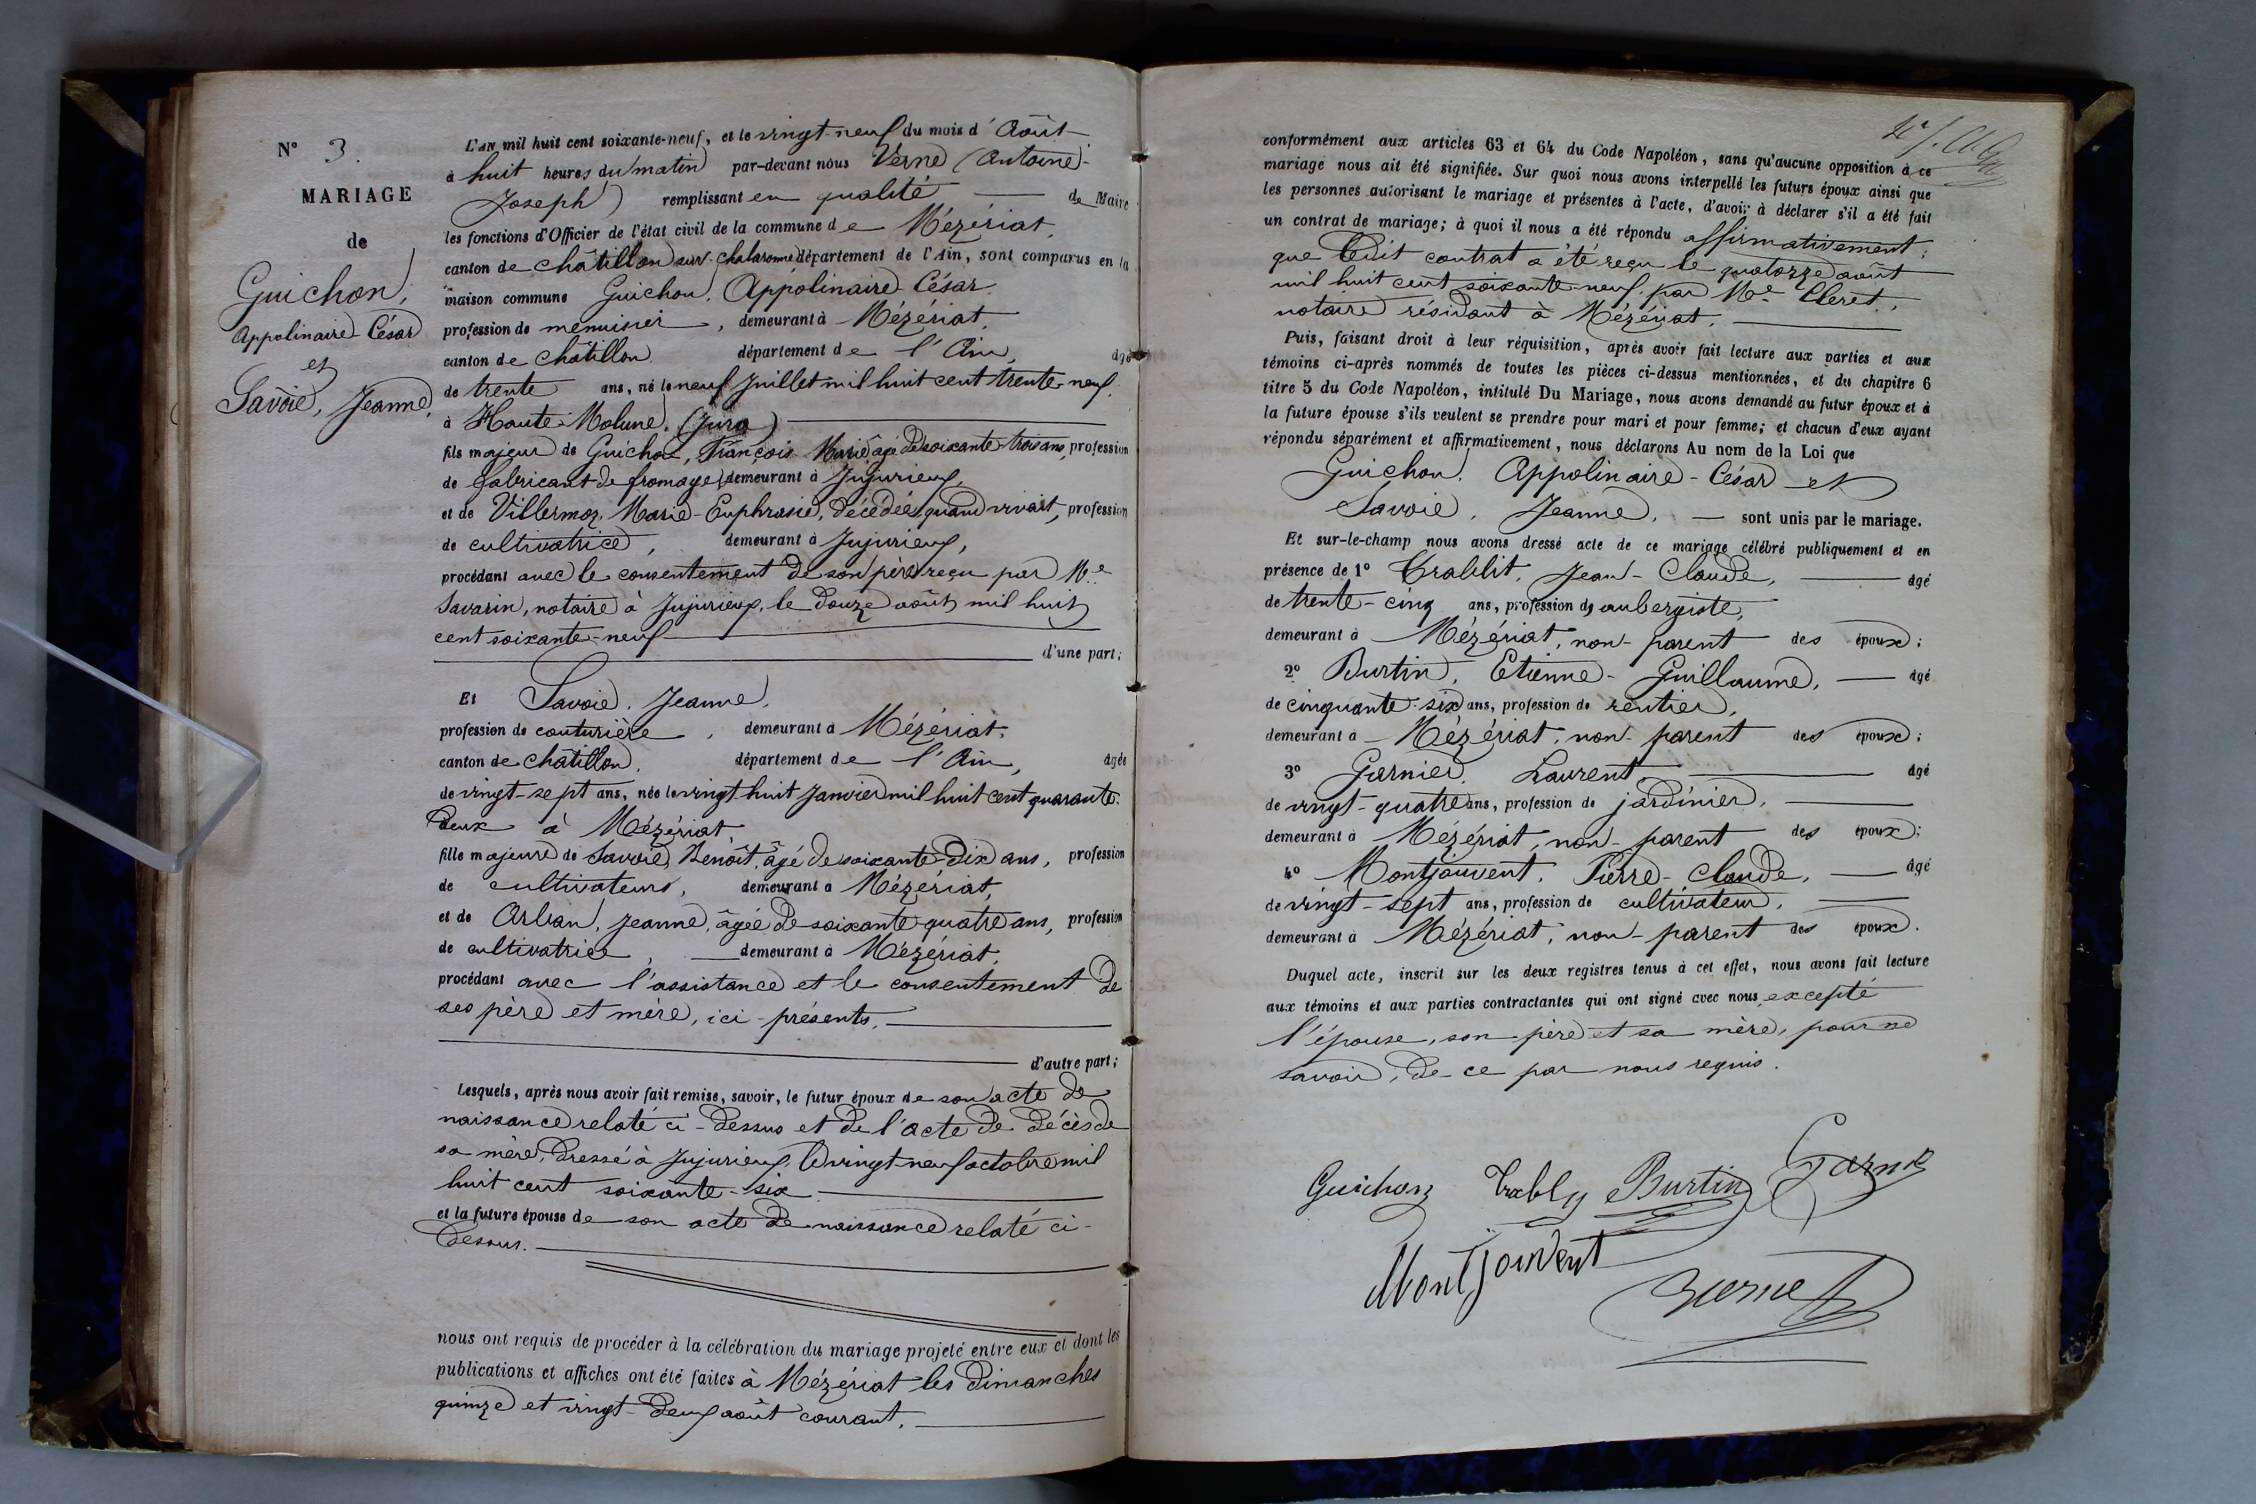 N° 3.
MARIAGE
de
Guichon,
Appolinaire César
et
Savoie, Jeanne.
L'AN mil huit cent soixante-neuf, et le vingt-neuf du mois d'Août
à huit heures du matin par-devant nous Verne (Antoine-
Joseph) remplissant en qualité de Maire
les fonctions d'Officier de l'état civil de la commune de Mézériat,
canton de Châtillon sur Chalaronne département de l'Ain, sont comparus en la
maison commune Guichon, Appolinaire César,
profession de menuisier, demeurant à Mézériat,
canton de Châtillon département de l'Ain, âgé
de trente ans, né le neuf Juillet mil huit cent trente-neuf.
à Haute-Molune (Jura)
fils majeur de Guichon, François-Marie âgé de soixante-trois ans, profession
de fabricant de fromage, demeurant à Jujurieux,
et de Villermoz, Marie-Euphrasie, décédée, quand vivait, profession
de cultivatrice, demeurant à Jujurieux,
procédant avec le consentement de son père reçu par Me
Savarin, notaire à Jujurieux, le douze août mil huit
cent soixante-neuf
d'une part;
Et Savoie, Jeanne,
profession de couturière, demeurant à Mézériat,
canton de Châtillon, département de l'Ain, âgée
de vingt-sept ans, née le vingt-huit Janvier mil huit cent quarante-
deux à Mézériat,
fille majeure de Savoie, Benoît, âgé de soixante-dix ans, profession
de cultivateur, demeurant à Mézériat,
et de Arban, Jeanne, âgée de soixante-quatre ans, profession
de cultivatrice, demeurant à Mézériat,
procédant avec l'assistance et le consentement de
ses père et mère, ici présents,
d'autre part;
Lesquels, après nous avoir fait remise, savoir, le futur époux de son acte de
naissance relaté ci-dessus et de l'acte de décès de
sa mère, dressé à Jujurieux, le vingt-neuf octobre mil
huit cent soixante-six
et la future épouse de son acte de naissance relaté ci-
dessus.
nous ont requis de procéder à la célébration du mariage projeté entre eux et dont les
publications et affiches ont été faites à Mézériat les dimanches
quinze et vingt-deux août courant.
conformément aux articles 63 et 64 du Code Napoléon, sans qu'aucune opposition à ce
mariage nous ait été signifiée. Sur quoi nous avons interpellé les futurs époux ainsi que
les personnes autorisant le mariage et présentes à l'acte, d'avoir à déclarer s'il a été fait
un contrat de mariage; à quoi il nous a été répondu affirmativement;
que ledit contrat a été reçu le quatorze août
mil huit cent soixante-neuf par Me Cleret,
notaire résidant à Mézériat.
Puis, faisant droit à leur réquisition, après avoir fait lecture aux parties et aux
témoins ci-après nommés de toutes les pièces ci-dessus mentionnées, et du chapitre 6
titre 5 du Code Napoléon, intitulé Du Mariage, nous avons demandé au futur époux et à
la future épouse s'ils veulent se prendre pour mari et pour femme; et chacun d'eux ayant
répondu séparément et affirmativement, nous déclarons Au nom de la Loi que
Guichon, Appolinaire-César et
Savoie, Jeanne, sont unis par le mariage.
Et sur-le-champ nous avons dressé acte de ce mariage célébré publiquement et en
présence de 1° Trablit, Jean-Claude, âgé
de trente-cinq ans, profession de aubergiste,
demeurant à Mézériat, non-parent des époux;
2° Burtin, Etienne-Guillaume, âgé
de cinquante-six ans, profession de rentier,
demeurant à Mézériat, non-parent des époux;
3° Garnier, Laurent âgé
de vingt-quatre ans, profession de jardinier,
demeurant à Mézériat, non-parent des époux;
4° Montjouvent, Pierre-Claude, âgé
de vingt-sept ans, profession de cultivateur,
demeurant à Mézériat, non-parent des époux.
Duquel acte, inscrit sur les deux registres tenus à cet effet, nous avons fait lecture
aux témoins et aux parties contractantes qui ont signé avec nous, excepté
l'épouse, son père et sa mère, pour ne
savoir, de ce par nous requis.
Guichon Trably Burtin Garnier
Montjouvent
Verne